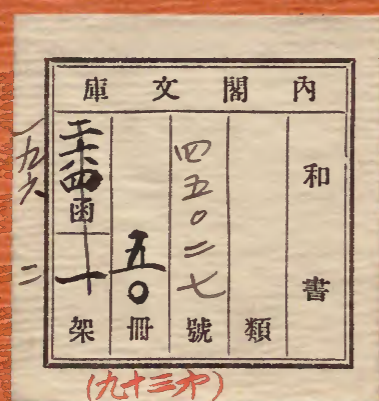 內閣文庫
和書
類
四五〇二七號
五〇冊
函
一架
一九六
二
(九十三